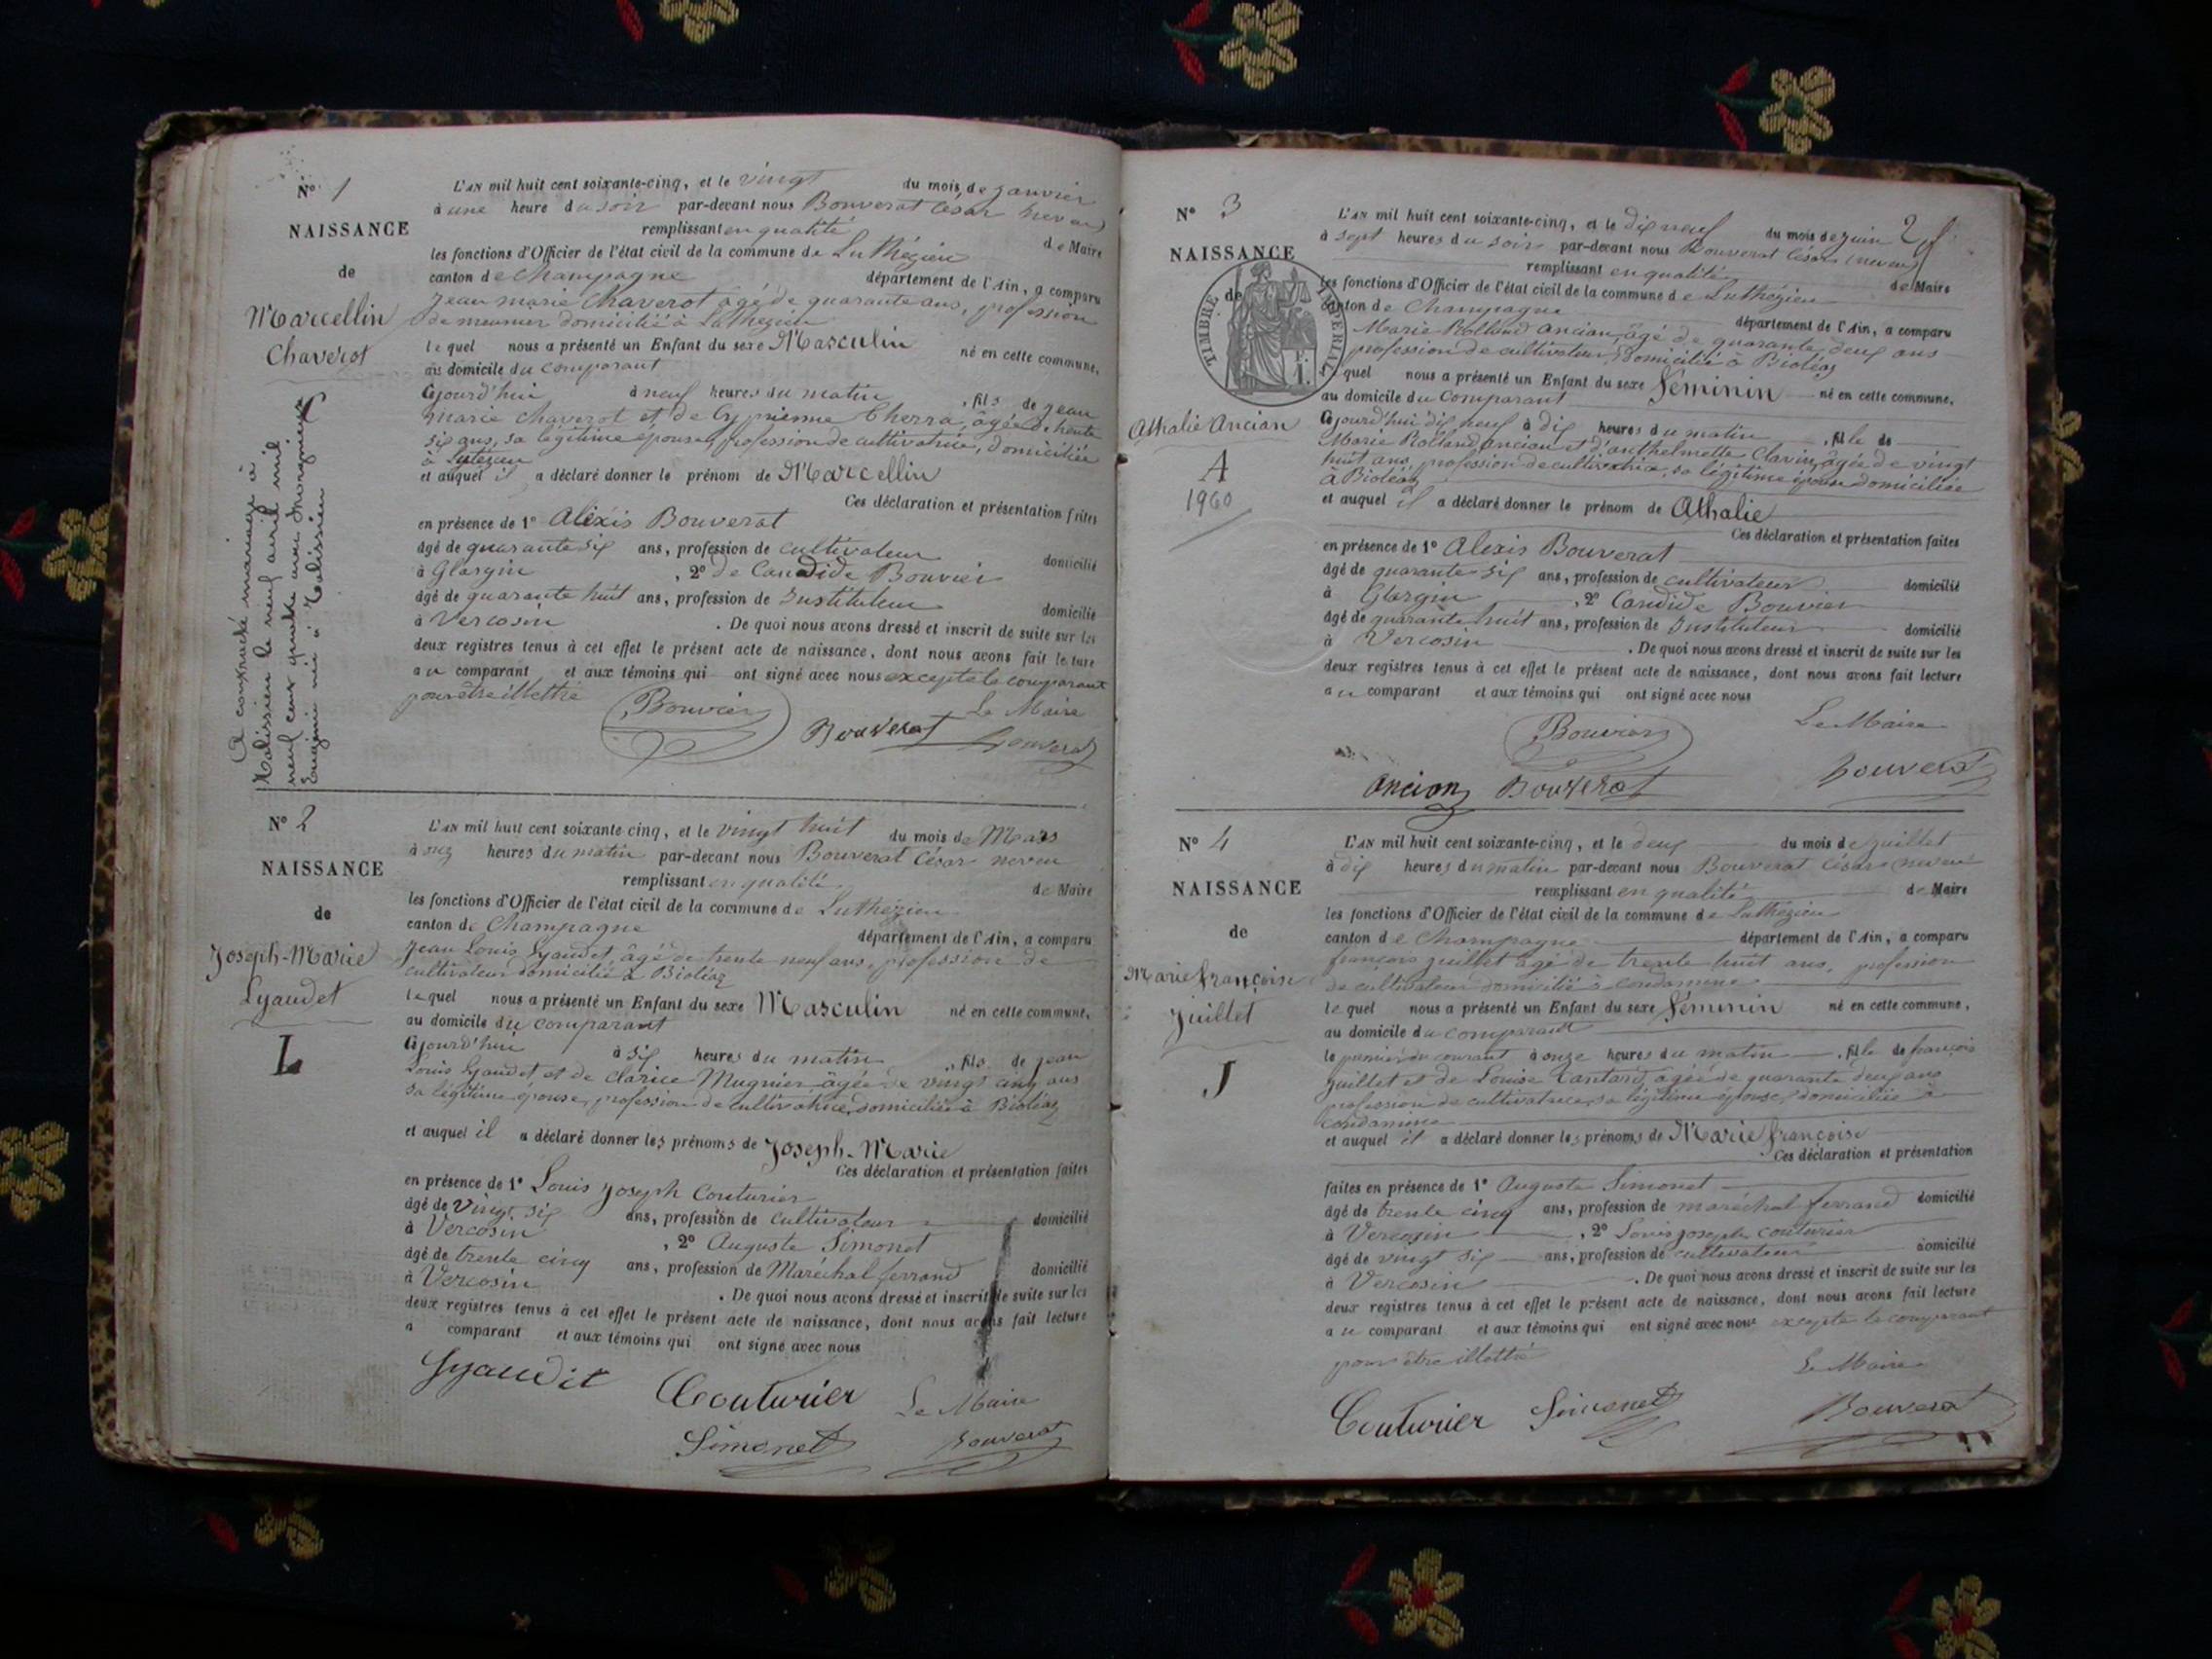 N° 1
NAISSANCE
de
Marcellin
Chaverot
A contracté mariage à
le neuf avril mil
neuf cent quatre avec
Eugénie née à
L'AN mil huit cent soixante-cinq, et le vingt du mois de janvier
à une heure du soir par-devant nous Bouverat César neveu
remplissant en qualité de Maire
les fonctions d'Officier de l'état civil de la commune de Luthézieu
canton de Champagne département de l'Ain, a comparu
Jean marie Chaverot âgé de quarante ans, profession
de meunier domicilié à Luthézieu
lequel nous a présenté un Enfant du sexe Masculin né en cette commune,
au domicile du comparant
ajourd'hui à neuf heures du matin, fils de jean
marie Chaverot et de Cyprienne Cherra, âgée de trente
six ans, sa légitime épouse, profession de cultivatrice, domiciliée
à
et auquel il a déclaré donner le prénom de Marcellin
Ces déclaration et présentation faites
en présence de 1° Alexis Bouverat
âgé de quarante six ans, profession de cultivateur domicilié
à Glargin, 2° de Candide Bouvier
âgé de quarante huit ans, profession de Instituteur domicilié
à Vercosin. De quoi nous avons dressé et inscrit de suite sur les
deux registres tenus à cet effet le présent acte de naissance, dont nous avons fait lecture
au comparant et aux témoins qui ont signé avec nous excepté le comparant
pour être illettré
Bouvier Bouverat Le Maire
Bouverat
N° 2
NAISSANCE
de
Joseph-Marie
Lyaudet
L
L'AN mil huit cent soixante-cinq, et le vingt huit du mois de Mars
à onz heures du matin par-devant nous Bouverat César neveu
remplissant en qualité de Maire
les fonctions d'Officier de l'état civil de la commune de Luthézieu
canton de Champagne département de l'Ain, a comparu
Jean Louis Lyaudet, âgé de trente neuf ans, profession de
cultivateur domicilié à Bioléaz
lequel nous a présenté un Enfant du sexe Masculin né en cette commune,
au domicile du comparant
ajourd'hui à six heures du matin, fils de jean
Louis Lyaudet et de Clarice Mugnier âgée de vingt cinq ans
sa légitime épouse, profession de cultivatrice, domiciliée à Bioléaz
et auquel il a déclaré donner les prénoms de Joseph-Marie
Ces déclaration et présentation faites
en présence de 1° Louis Joseph Couturier
âgé de vingt six ans, profession de cultivateur domicilié
à Vercosin, 2° Auguste Simonet
âgé de trente cinq ans, profession de Maréchal ferrand domicilié
à Vercosin. De quoi nous avons dressé et inscrit de suite sur les
deux registres tenus à cet effet le présent acte de naissance, dont nous avons fait lecture
a comparant et aux témoins qui ont signé avec nous
Lyaudet Couturier Le Maire
Simonet Bouverat
2
N° 3
NAISSANCE
de
TIMBRE IMPERIAL
Athalie Ancian
A
1960
L'AN mil huit cent soixante-cinq, et le dix neuf du mois de juin
à sept heures du soir par-devant nous Bouverat César (neveu)
remplissant en qualité de Maire
les fonctions d'Officier de l'état civil de la commune de Luthézieu
canton de Champagne département de l'Ain, a comparu
Marie Rolland Ancian, âgé de quarante deux ans
profession de cultivateur, domicilié à Bioléaz
lequel nous a présenté un Enfant du sexe Féminin né en cette commune,
au domicile du comparant
ajourd'hui dix neuf à dix heures du matin, fille de
Marie Rolland Ancian et d'anthelmette Clavin, âgée de vingt
huit ans, profession de cultivatrice, sa légitime épouse domiciliée
à Bioléaz
et auquel il a déclaré donner le prénom de Athalie
Ces déclaration et présentation faites
en présence de 1° Alexis Bouverat
âgé de quarante six ans, profession de cultivateur domicilié
à Glargin, 2° Candide Bouvier
âgé de quarante huit ans, profession de Instituteur domicilié
à Vercosin. De quoi nous avons dressé et inscrit de suite sur les
deux registres tenus à cet effet le présent acte de naissance, dont nous avons fait lecture
au comparant et aux témoins qui ont signé avec nous
Bouvier Le Maire
Ancian Bouverat Bouverat
N° 4
NAISSANCE
de
Marie françoise
Juillet
J
L'AN mil huit cent soixante-cinq, et le deux du mois de juillet
à dix heures du matin par-devant nous Bouverat César (neveu)
remplissant en qualité de Maire
les fonctions d'Officier de l'état civil de la commune de Luthézieu
canton de Champagne département de l'Ain, a comparu
françois juillet âgé de trente huit ans, profession
de cultivateur domicilié à condamine
lequel nous a présenté un Enfant du sexe Féminin né en cette commune,
au domicile du comparant
le premier du courant à onze heures du matin, fille de françois
juillet et de Louise Tantard, âgée de quarante deux ans
profession de cultivatrice, sa légitime épouse, domiciliée à
condamine
et auquel il a déclaré donner les prénoms de Marie françoise
Ces déclaration et présentation
faites en présence de 1° Auguste Simonet
âgé de trente cinq ans, profession de maréchal ferrand domicilié
à Vercosin, 2° Louis joseph couturier
âgé de vingt six ans, profession de cultivateur domicilié
à Vercosin. De quoi nous avons dressé et inscrit de suite sur les
deux registres tenus à cet effet le présent acte de naissance, dont nous avons fait lecture
au comparant et aux témoins qui ont signé avec nous excepté le comparant
pour être illettré
Le Maire
Couturier Simonet Bouverat